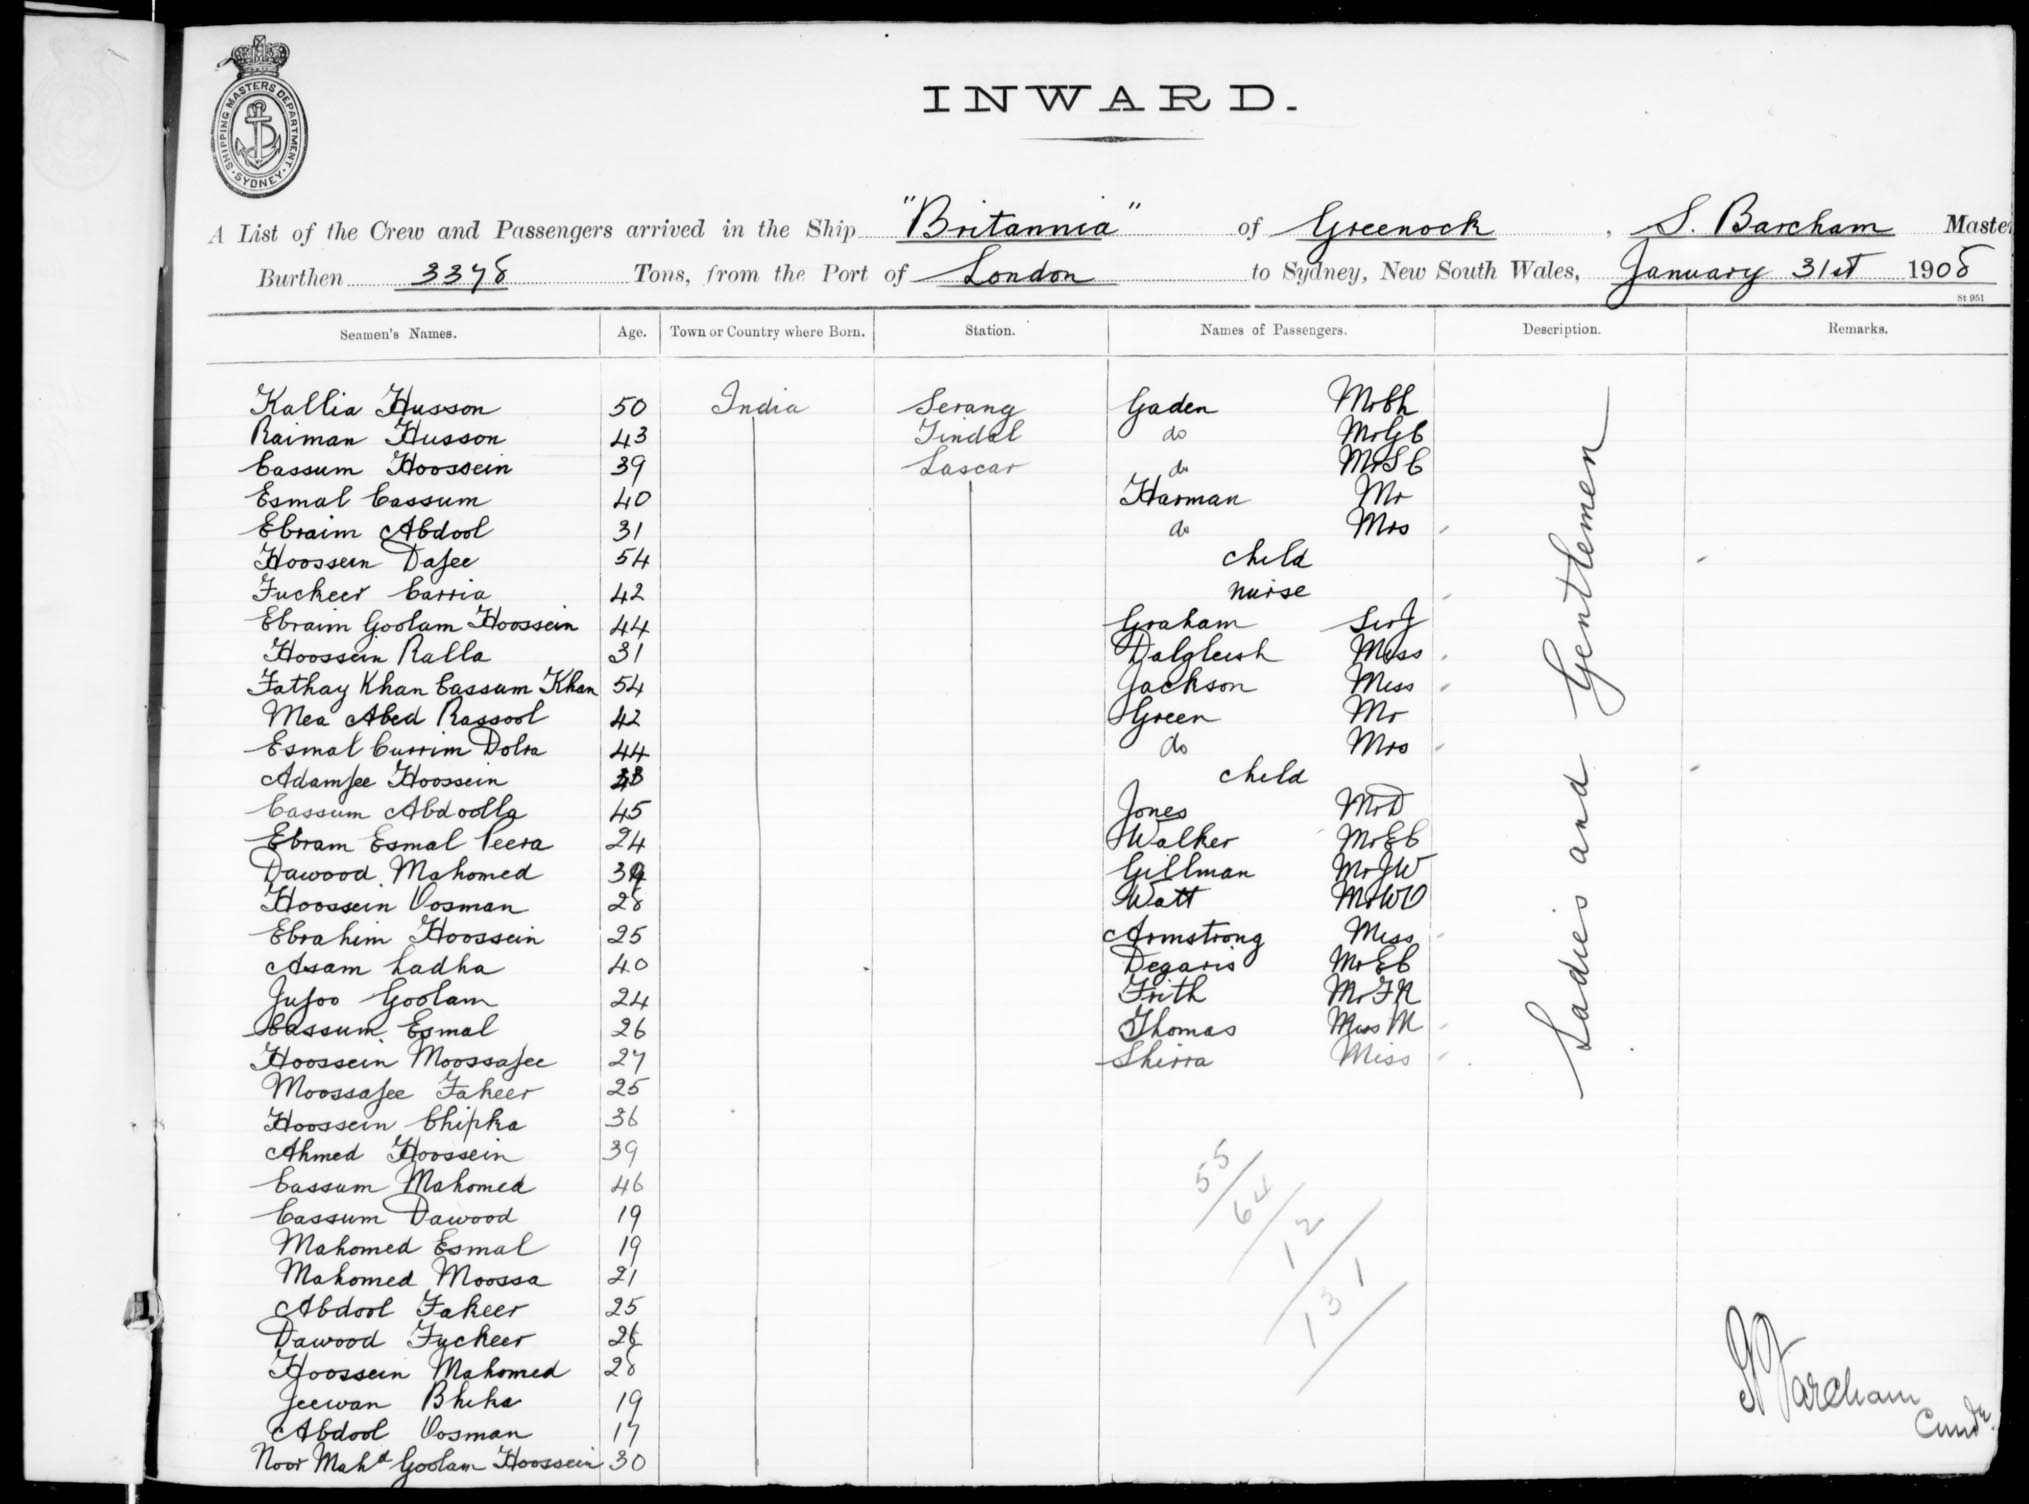 SHIPPING MASTERS DEPARTMENT · SYDNEY ·
INWARD.
A List of the Crew and Passengers arrived in the Ship "Britannia" of Greenock, S. Barcham Master
Burthen 3378 Tons, from the Port of London to Sydney, New South Wales, January 31st 1908
St 951
Seamen's Names. Age. Town or Country where Born. Station. Names of Passengers. Description. Remarks.
Kallia Husson 50 India Serang Gaden Mr Ch
Raiman Husson 43 Tindal do Mr G C
Cassum Hoossein 39 Lascar do Mr S C
Esmal Cassum 40 Harman Mr
Ebraim Abdool 31 do Mrs
Hoossein Dajee 54 child
Fuckeer Carria 42 nurse
Ebraim Goolam Hoossein 44 Graham Sir J
Hoossein Ralla 31 Dalgleish Miss
Fathay Khan Cassum Khan 54 Jackson Miss
Mea Abed Rassool 42 Green Mr
Esmal Currim Dolra 44 do Mrs
Adamjee Hoossein child
Cassum Abdoolla 45 Jones Mr D
Ebram Esmal Peera 24 Walker Mr E C
Dawood Mahomed Gillman Mr J W
Hoossein Oosman 28 Watt Mr W O
Ebrahim Hoossein 25 Armstrong Miss
Asam Ladha 40 Degaris Mr E C
Jujoo Goolam 24 Frith Mr F R
Cassum Esmal 26 Thomas Miss M
Hoossein Moossajee 27 Shirra Miss
Moossajee Fakeer 25
Hoossein Chipka 36
Ahmed Hoossein 39
Cassum Mahomed 46
Cassum Dawood 19
Mahomed Esmal 19
Mahomed Moossa 21
Abdool Fakeer 25
Dawood Fuckeer 26
Hoossein Mahomed 28
Jeewan Bhika 19
Abdool Oosman 17
Noor Mahd Goolam Hoossein 30
Ladies and Gentlemen
55
64
12
131
S Barcham
Cmdr.